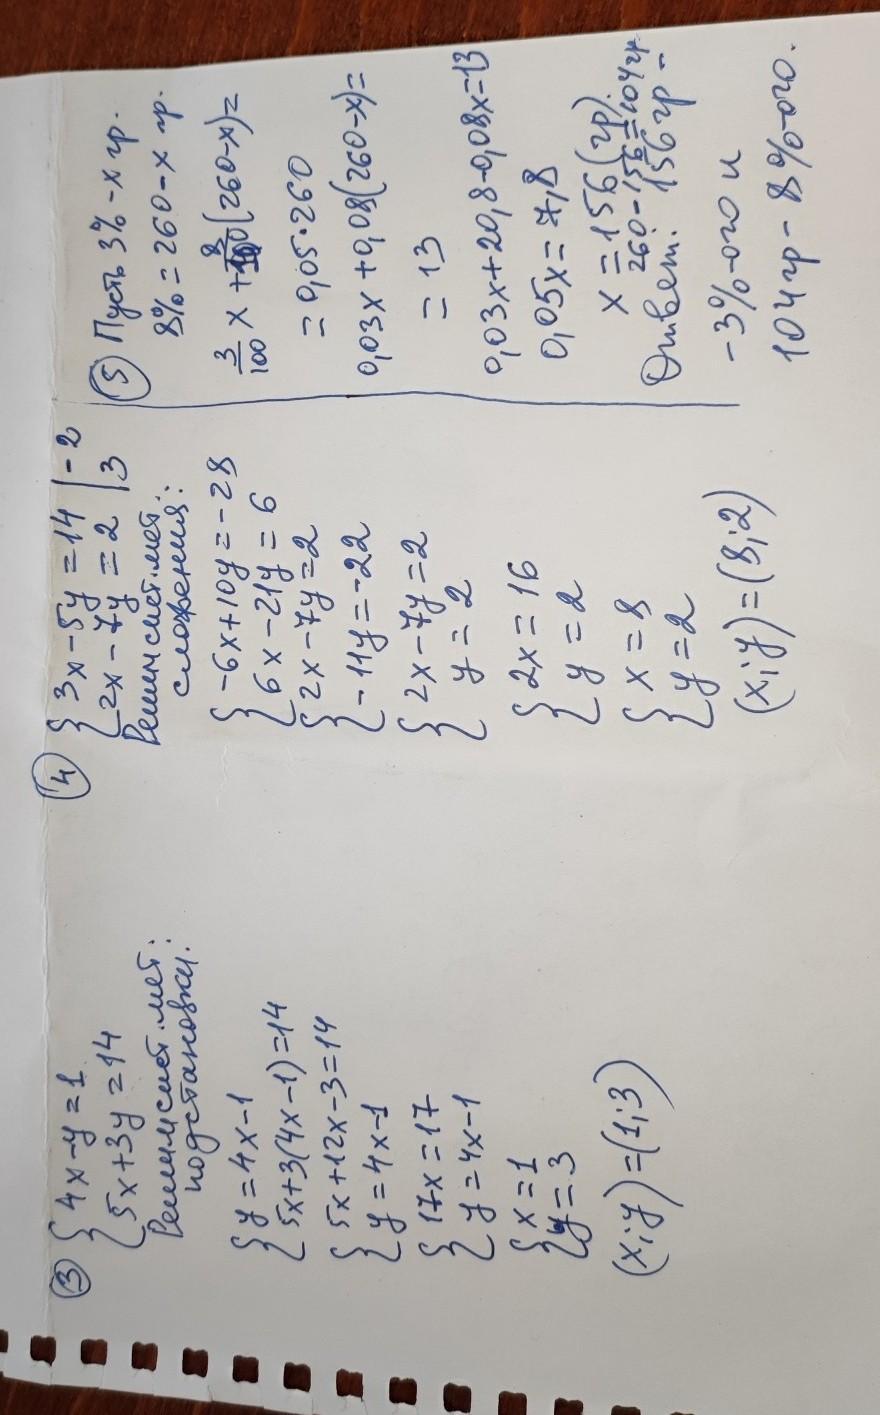 ③ { 4x-y=1
5x+3y=14
Решим сист. мет.
подстановки:
{ y=4x-1
5x+3(4x-1)=14
{ 5x+12x-3=14
y=4x-1
{ 17x=17
y=4x-1
{ x=1
y=3
(x;y)=(1;3)
④ { 3x-5y=14 |-2
2x-7y=2 |3
Решим сист. мет.
сложения:
{ -6x+10y=-28
6x-21y=6
{ 2x-7y=2
-11y=-22
{ 2x-7y=2
y=2
{ 2x=16
y=2
{ x=8
y=2
(x;y)=(8;2)
⑤ Пусть 3% - x гр.
8% = 260-x гр.
3/100 x + 8/100 (260-x)=
= 0,05·260
0,03x+0,08(260-x)=
= 13
0,03x+20,8-0,08x=13
0,05x=7,8
x=156 (гр)
260-156=104 гр
Ответ: 156 гр -
-3%-ого и
104 гр - 8%-ого.